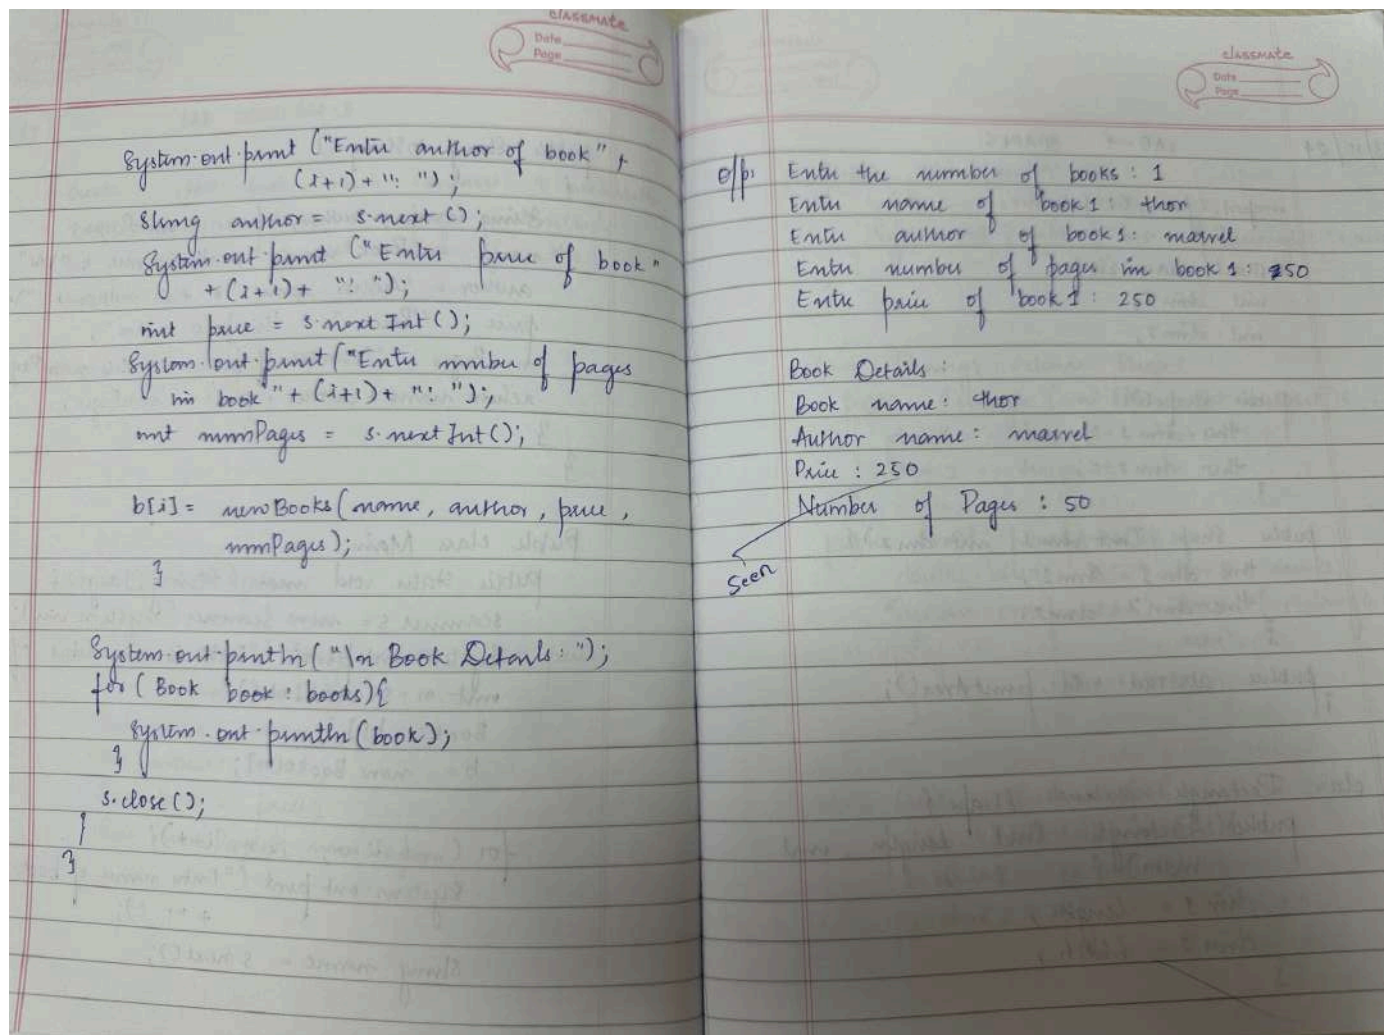 classmate
Date
Page
System.out.print ("Enter author of book" +
(i+1) + ": ");
String author = s.next ();
System.out.print ("Enter price of book"
+ (i+1) + ": ");
int price = s.next Int ();
System.out.print ("Enter number of pages
in book " + (i+1) + ": ");
int numPages = s.next Int ();
b[i] = new Books (name, author, price,
numPages);
}
System.out.println ("\n Book Details: ");
for ( Book book : books) {
System.out.println (book);
}
s.close ();
}
}
classmate
Date
Page
o/p: Enter the number of books : 1
Enter name of book 1 : thor
Enter author of book 1 : marvel
Enter number of pages in book 1 : 50
Enter price of book 1 : 250
Book Details :
Book name : thor
Author name : marvel
Price : 250
Number of Pages : 50
Seen